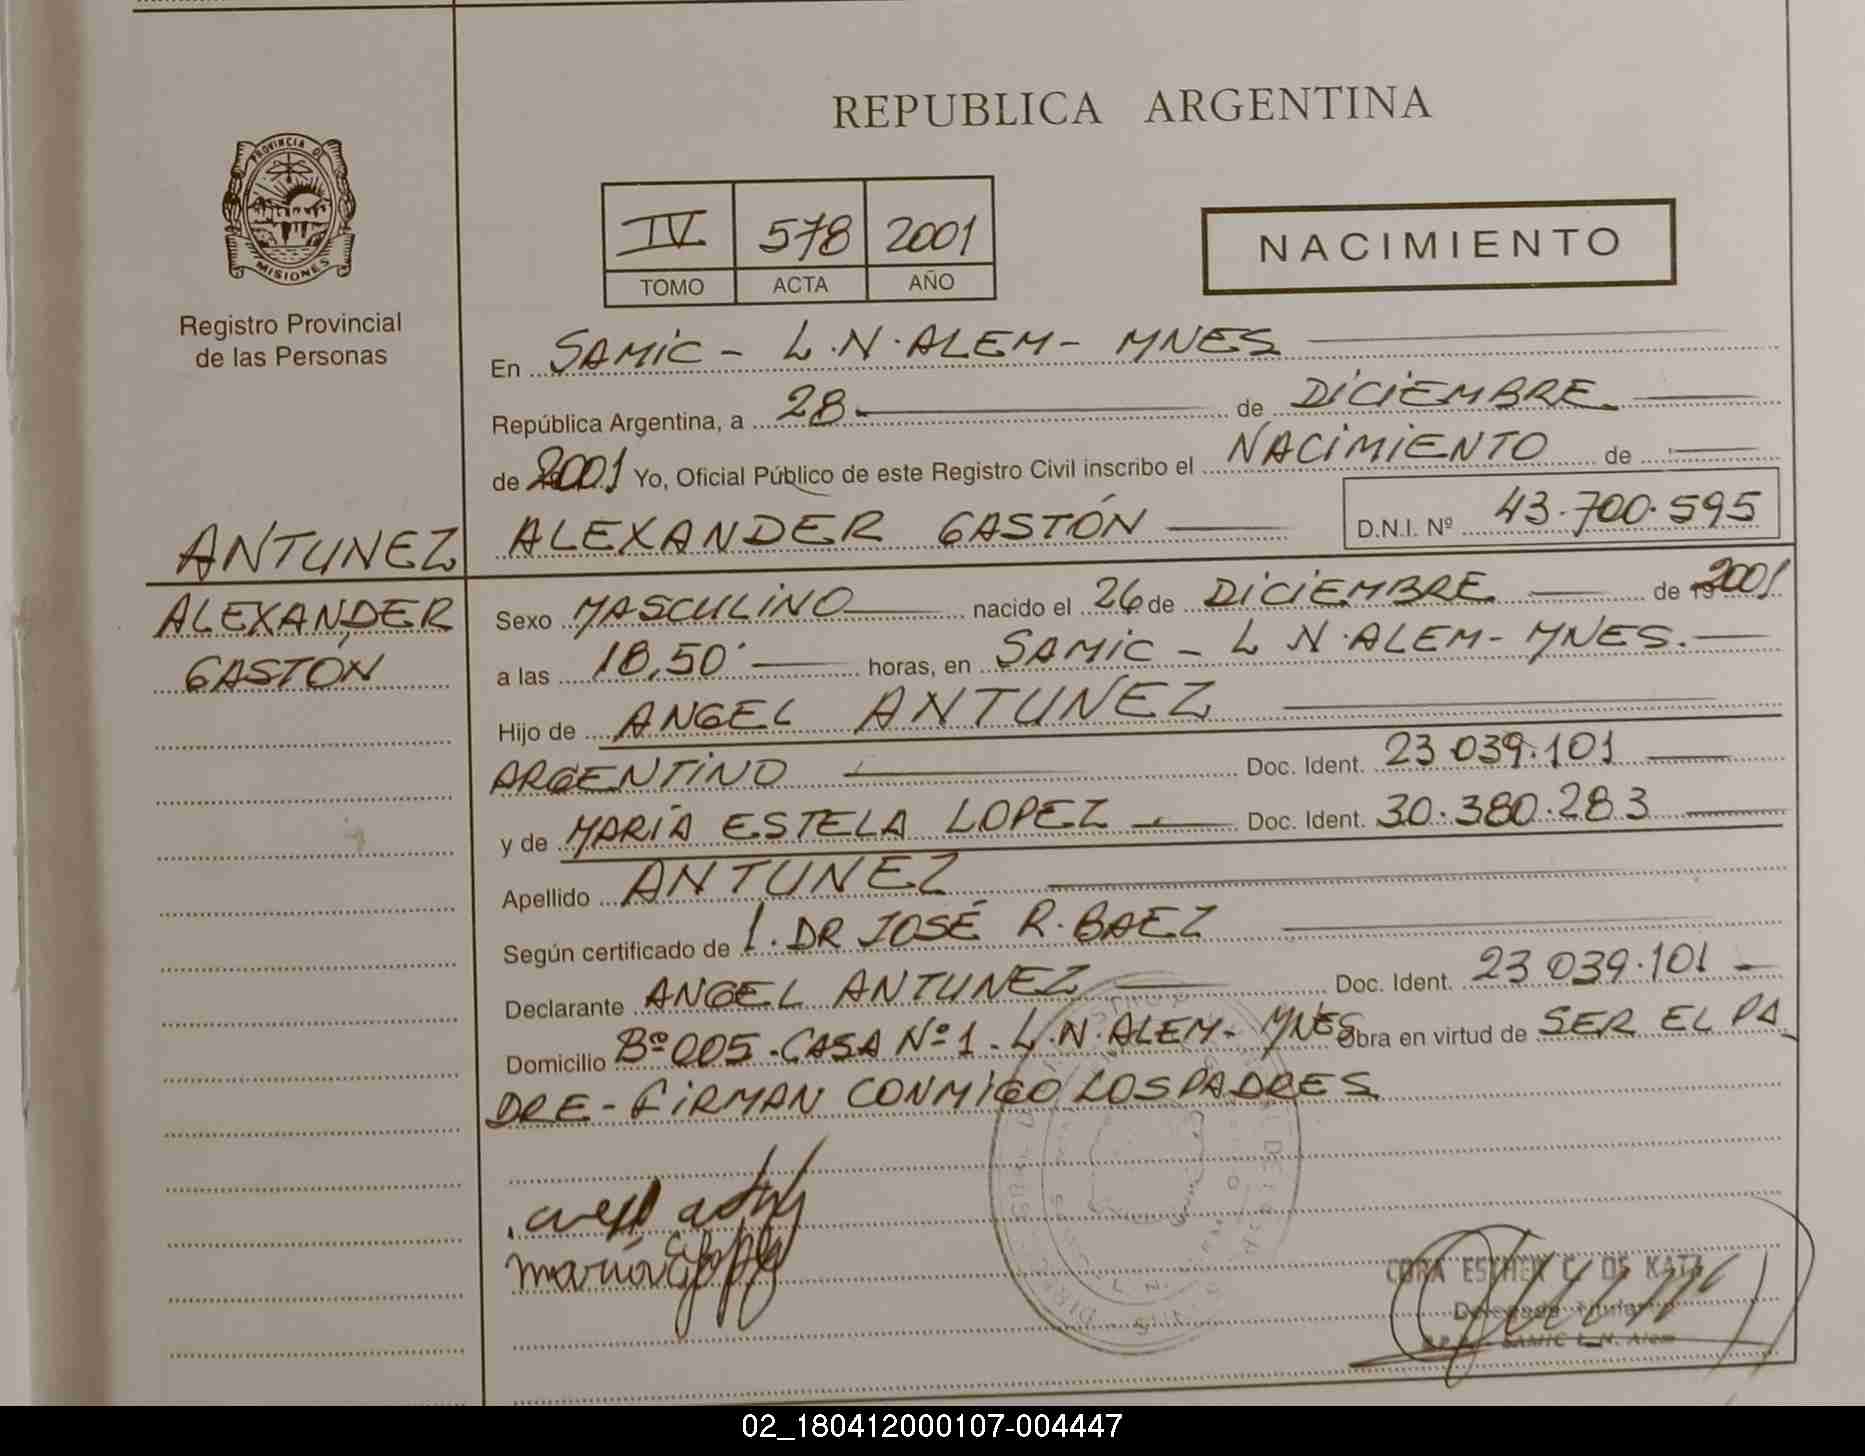 REPUBLICA ARGENTINA
PROVINCIA DE
MISIONES
Registro Provincial
de las Personas
IV 578 2001
TOMO ACTA AÑO
NACIMIENTO
En SAMIC - L.N. ALEM - MNES
República Argentina, a 28 de DICIEMBRE
de 2001 Yo, Oficial Público de este Registro Civil inscribo el NACIMIENTO de
ALEXANDER GASTÓN D.N.I. Nº 43.700.595
ANTUNEZ
ALEXANDER
GASTON
Sexo MASCULINO nacido el 26 de DICIEMBRE de 2001
a las 18,50' horas, en SAMIC - L N. ALEM - MNES.
Hijo de ANGEL ANTUNEZ
ARGENTINO Doc. Ident. 23 039.101
y de MARIA ESTELA LOPEZ Doc. Ident. 30.380.283
Apellido ANTUNEZ
Según certificado de 1. DR JOSÉ R. BAEZ
Declarante ANGEL ANTUNEZ Doc. Ident. 23 039.101
Domicilio Bº 005 - CASA Nº 1 - L.N. ALEM - MNES Obra en virtud de SER EL PA
DRE - FIRMAN CONMIGO LOS PADRES
maria
CORA ESTHER C. OS KATZ
Delegada Titular
SAMIC L.N. Alem
02_180412000107-004447